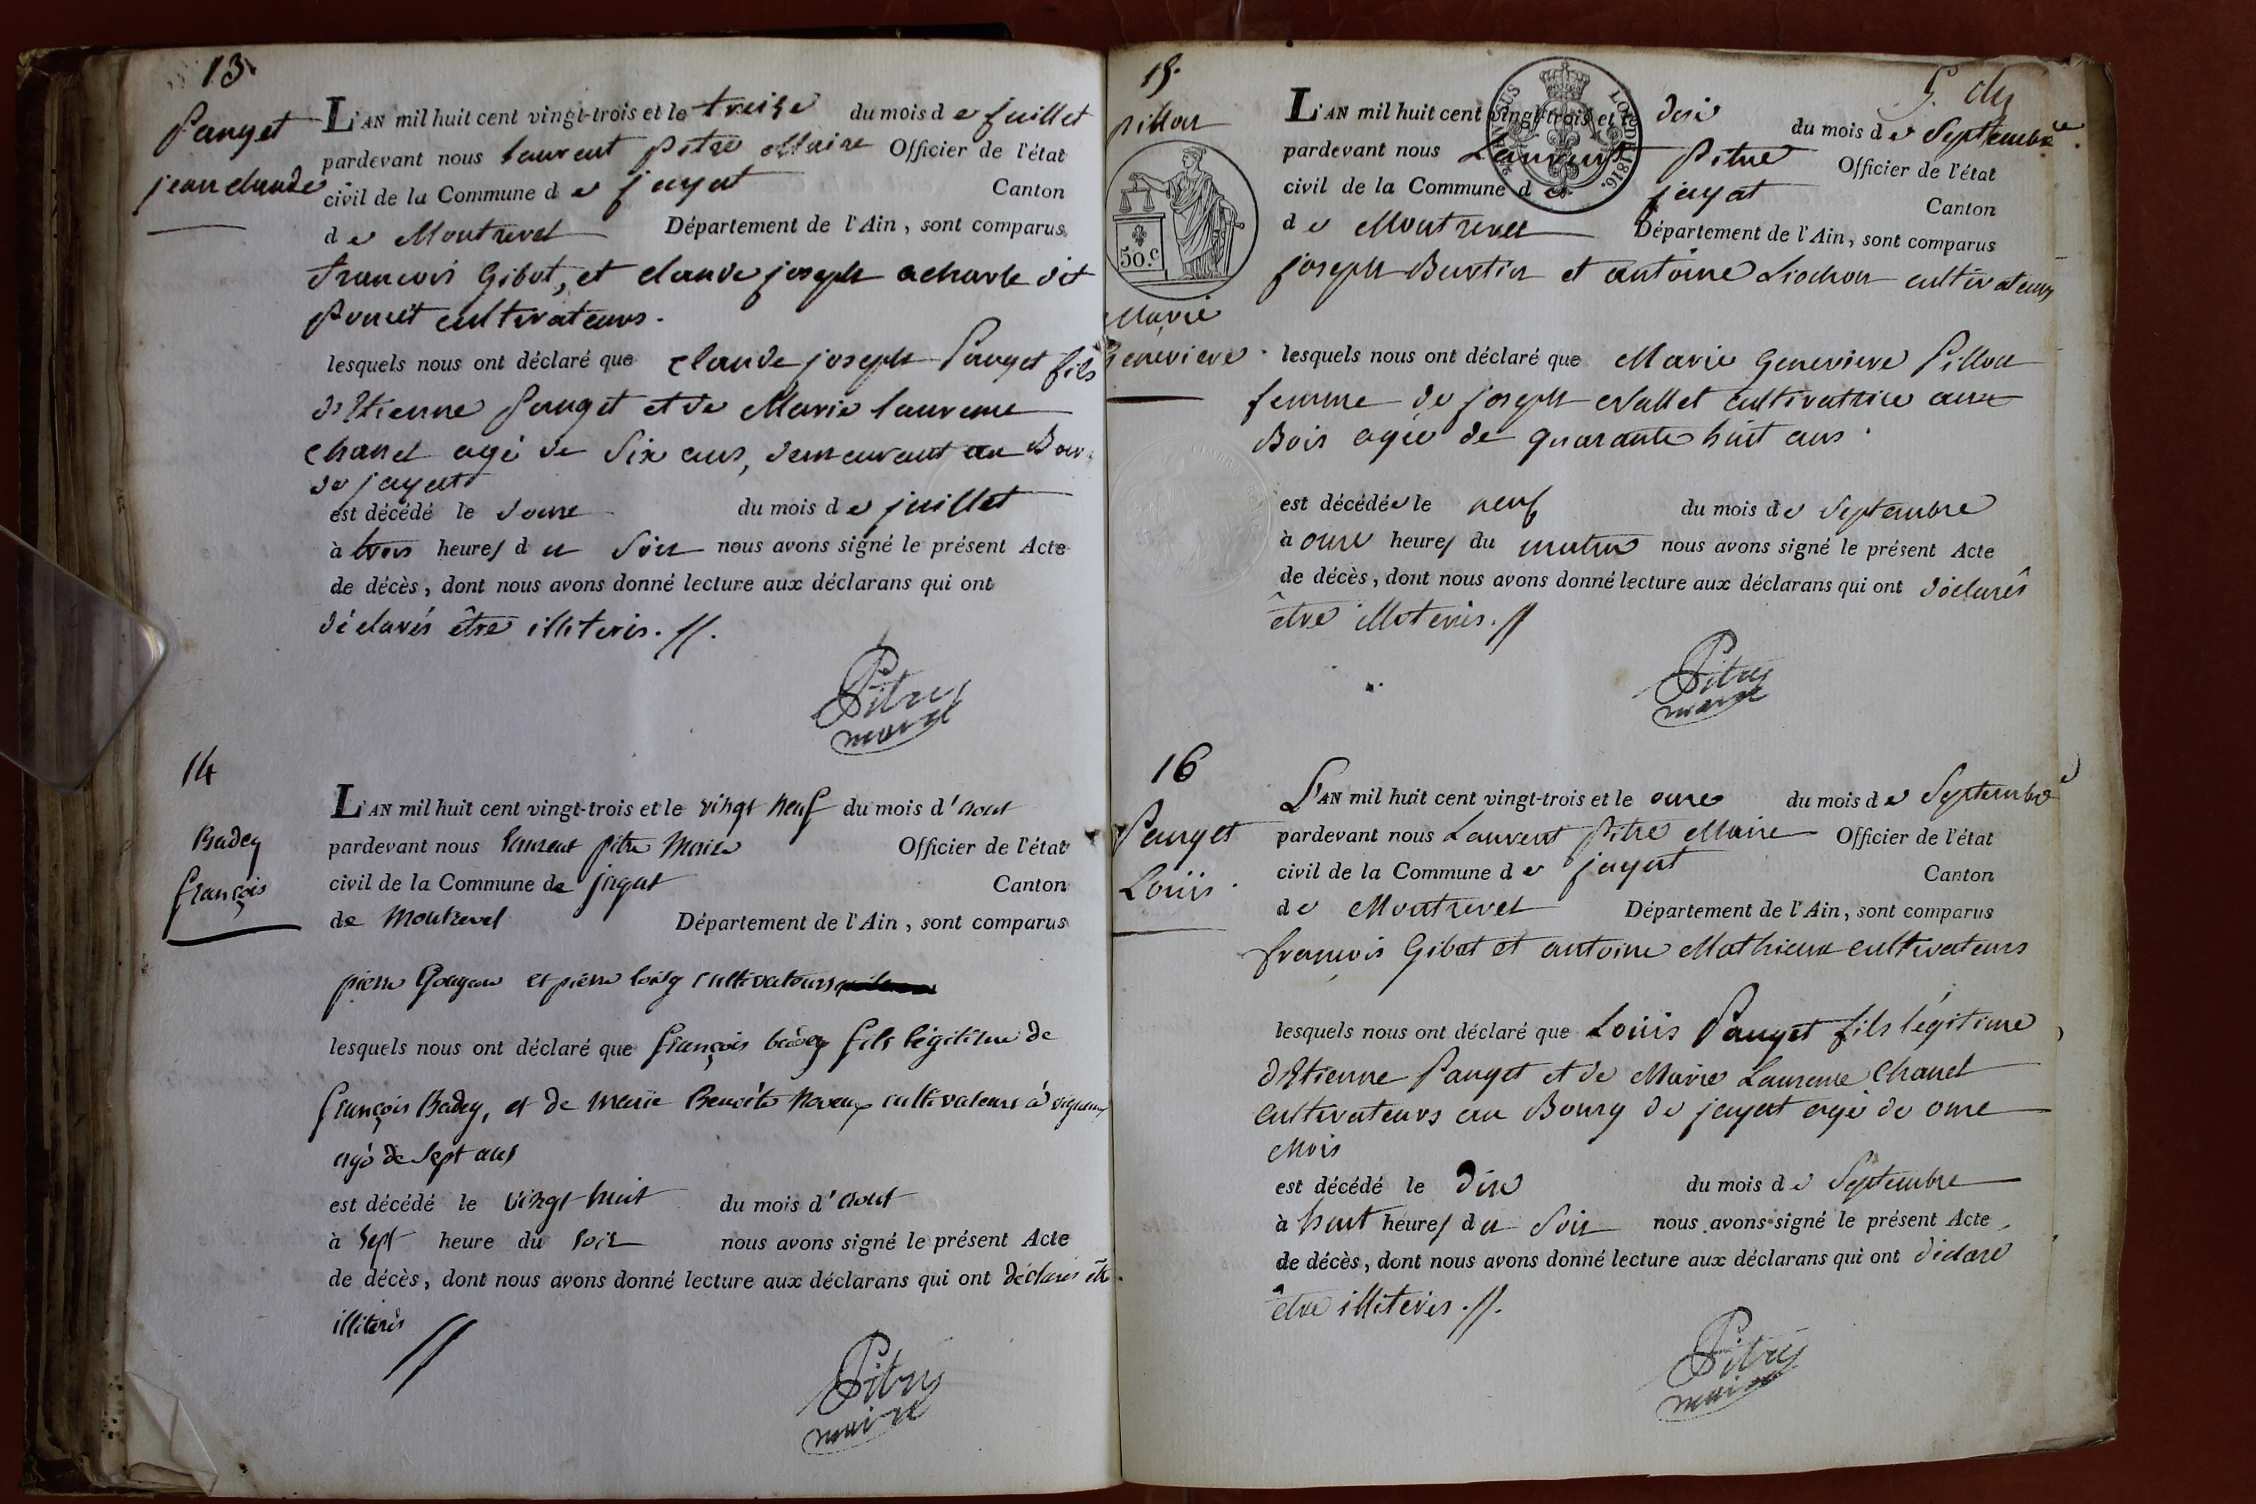 13
Pauget
jean claude
L'AN mil huit cent vingt-trois et le treize du mois de juillet
pardevant nous laurent pitre Maire Officier de l'état
civil de la Commune de jayat Canton
de Montrevel Département de l'Ain, sont comparus
francois Gibot, et claude joseph acharle dit
Poncet cultivateurs.
lesquels nous ont déclaré que claude joseph Pauget fils
d'Etienne Pauget et de Marie laurence
chanel agé de Six ans, demeurant au Bourg
de jayat
est décédé le douze du mois de juillet
à trois heures du Soir nous avons signé le présent Acte
de décès, dont nous avons donné lecture aux déclarans qui ont
déclarés être illiterés.
Pitre
maire
14
Badey
françois
L'AN mil huit cent vingt-trois et le vingt neuf du mois d'aout
pardevant nous laurent pitre Maire Officier de l'état
civil de la Commune de jayat Canton
de Montrevel Département de l'Ain, sont comparus
pierre et pierre cultivateurs
lesquels nous ont déclaré que françois badey fils légitime de
françois Badey, et de marie Benoite cultivateurs à
agé de Sept ans
est décédé le vingt huit du mois d'aout
à Sept heure du soir nous avons signé le présent Acte
de décès, dont nous avons donné lecture aux déclarans qui ont déclarés être
illiterés
Pitre
maire
5.
15.
pillon
50.c
LOI DE 1816.
Marie
Genevieve
L'AN mil huit cent vingt-trois et le dix du mois de Septembre
pardevant nous Laurent Pitre Officier de l'état
civil de la Commune de jayat Canton
de Montrevel Département de l'Ain, sont comparus
joseph Burtin et antoine Liochon cultivateurs
lesquels nous ont déclaré que Marie Genevieve Pillon
femme de joseph Nallet cultivatrice aux
Bois agée de quarante huit ans.
est décédée le neuf du mois de Septembre
à onze heures du matin nous avons signé le présent Acte
de décès, dont nous avons donné lecture aux déclarans qui ont déclarés
être illiterés.
Pitre
maire
16
Pauget
Louis.
L'AN mil huit cent vingt-trois et le onze du mois de Septembre
pardevant nous Laurent Pitre Maire Officier de l'état
civil de la Commune de jayat Canton
de Montrevel Département de l'Ain, sont comparus
françois Gibot et antoine Mathieux cultivateurs
lesquels nous ont déclaré que Louis Pauget fils légitime
d'Etienne Pauget et de Marie Laurence Chanel
cultivateurs au Bourg de jayat agé de onze
Mois
est décédé le dix du mois de Septembre
à huit heures du Soir nous avons signé le présent Acte
de décès, dont nous avons donné lecture aux déclarans qui ont déclaré
être illiterés.
Pitre
maire